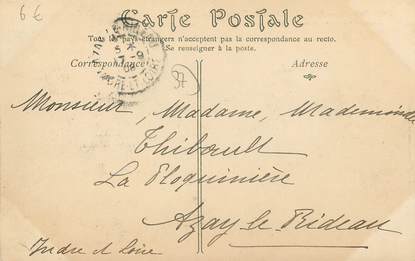 6 €
Carte Postale
Tous les pays étrangers n'acceptent pas la correspondance au recto.
Se renseigner à la poste.
Correspondance
Adresse
37
Monsieur, Madame, Mademoiselle
Thibault
La Ploquinière
Azay-le-Rideau
Indre et Loire